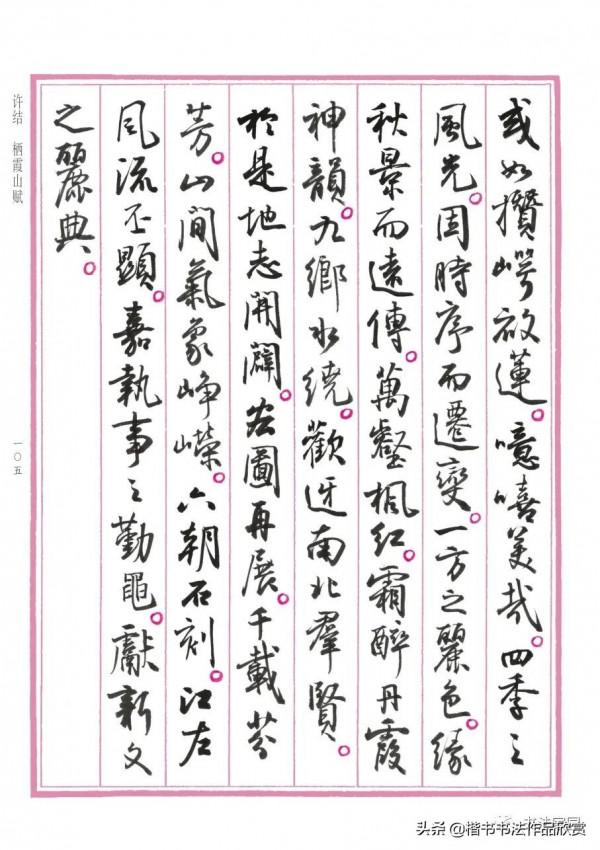 或如攢崿放蓮。噫嘻美哉。四季之
風光。因時序而遷變。一方之麗色。緣
秋景而遠傳。萬壑楓紅。霜醉丹霞
神韻。九鄉水繞。歡迓南北羣賢。
於是地志開闢。宏圖再展。千載芬
芳。山間氣象崢嶸。六朝石刻。江左
風流丕顯。嘉執事之勤黽。獻新文
之麗典。
许结 栖霞山赋
一〇五
头条 @楷书书法作品欣赏